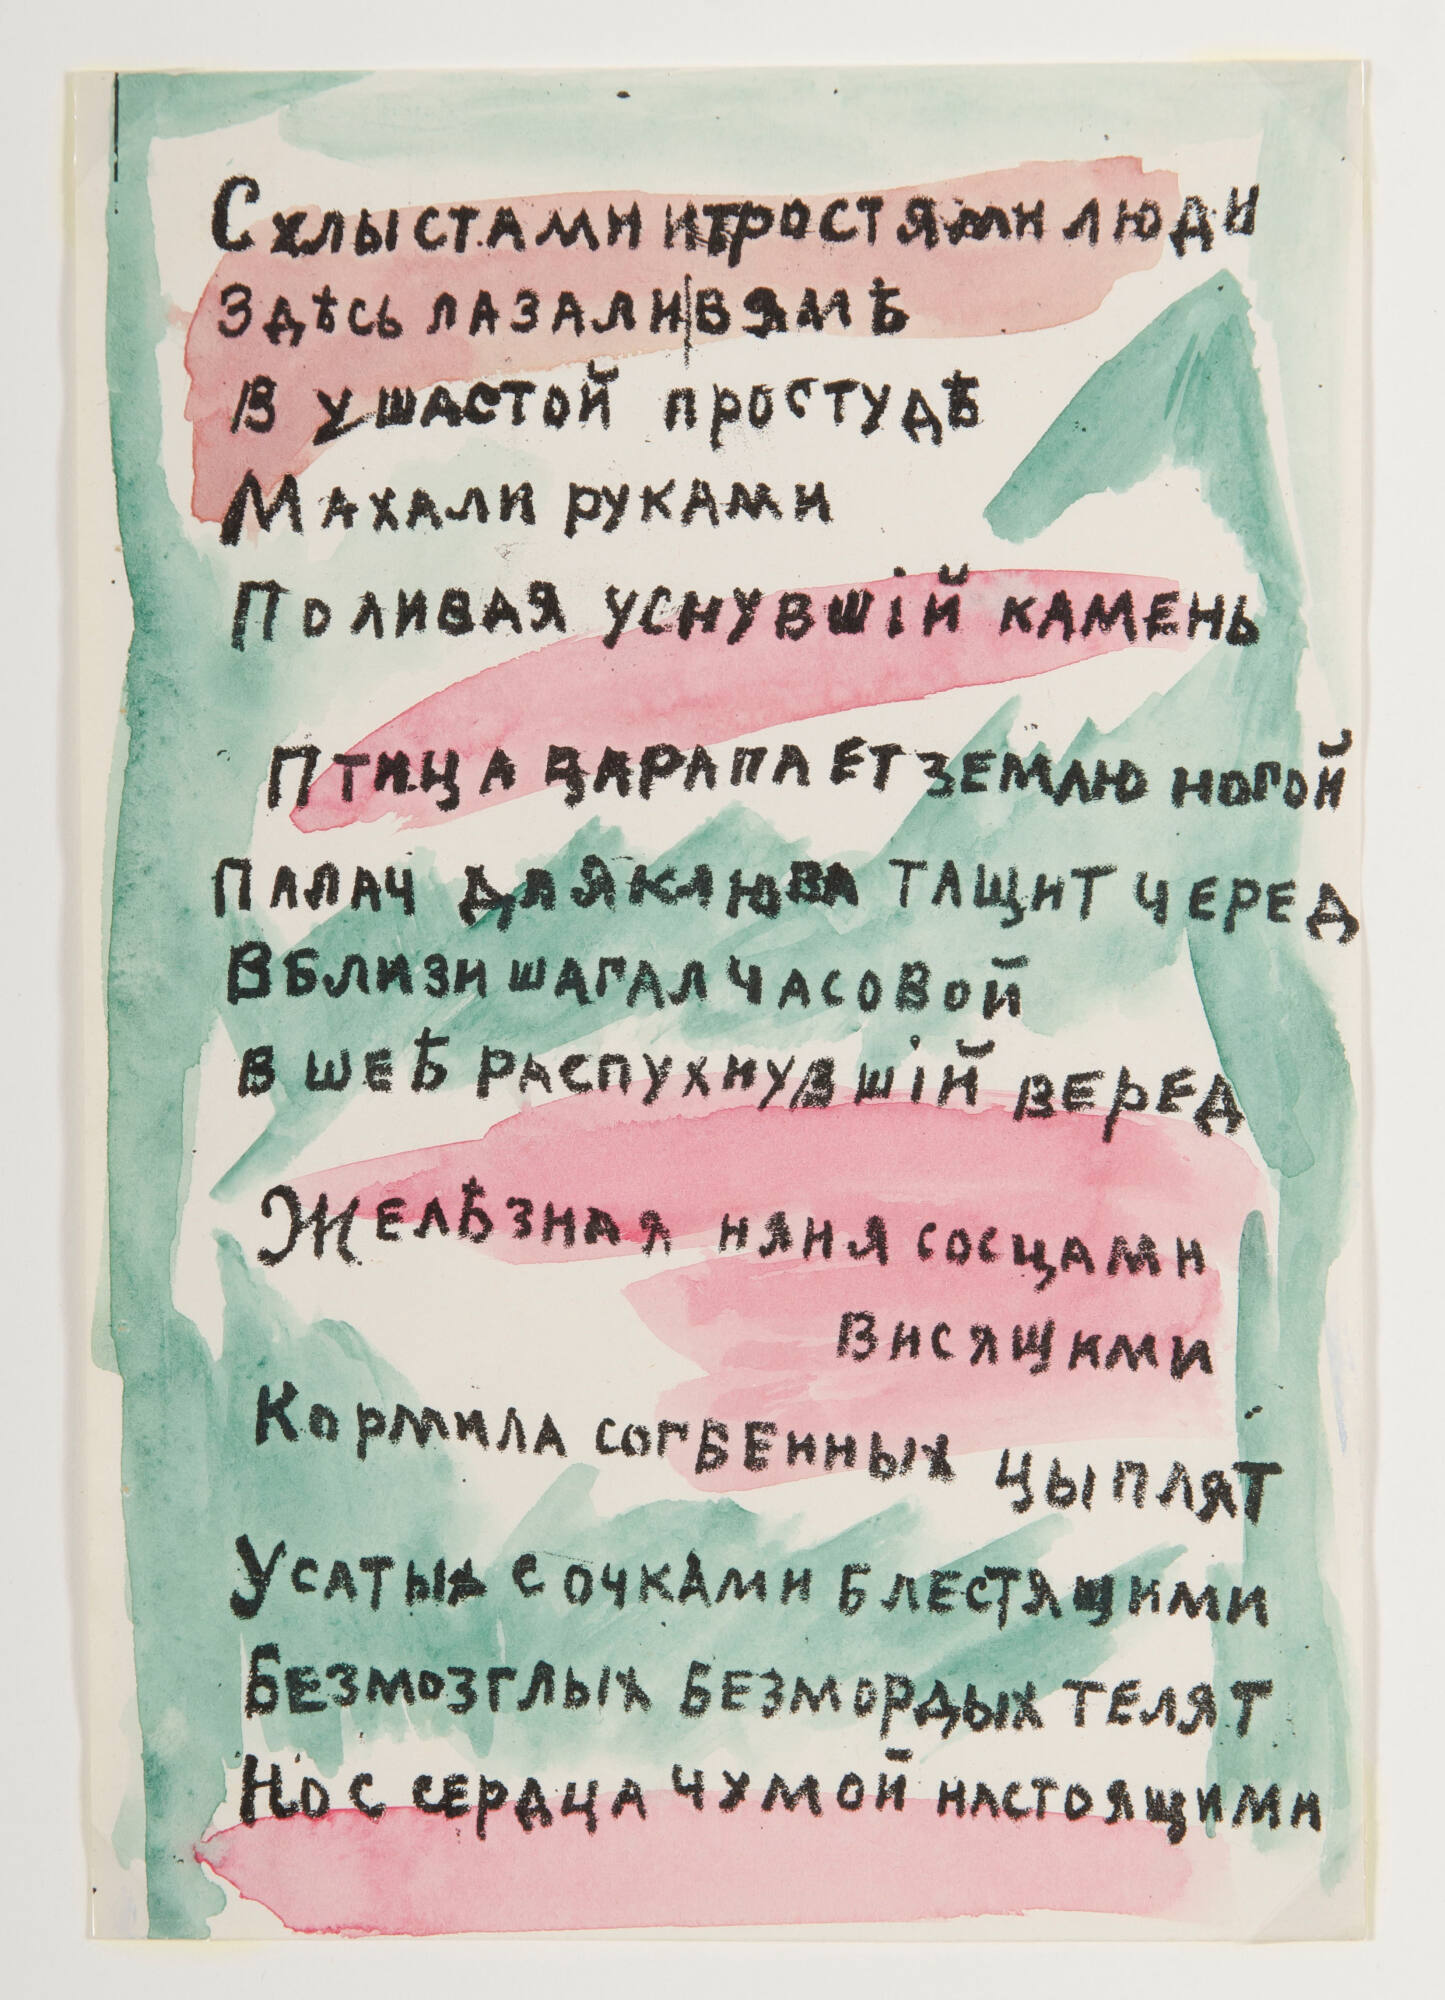 С хлыстами и тростями люди
Здѣсь лазали в ямѣ
В ушастой простудѣ
Махали руками
Поливая уснувшій камень
Птица царапает землю ногой
Палач для клюва тащит черед
Вблизи шагал часовой
В шеѣ распухнувшій веред
Желѣзная няня сосцами
Висящими
Кормила согбенных цыплят
Усатых с очками блестящими
Безмозглых безмордых телят
Но с сердца чумой настоящими